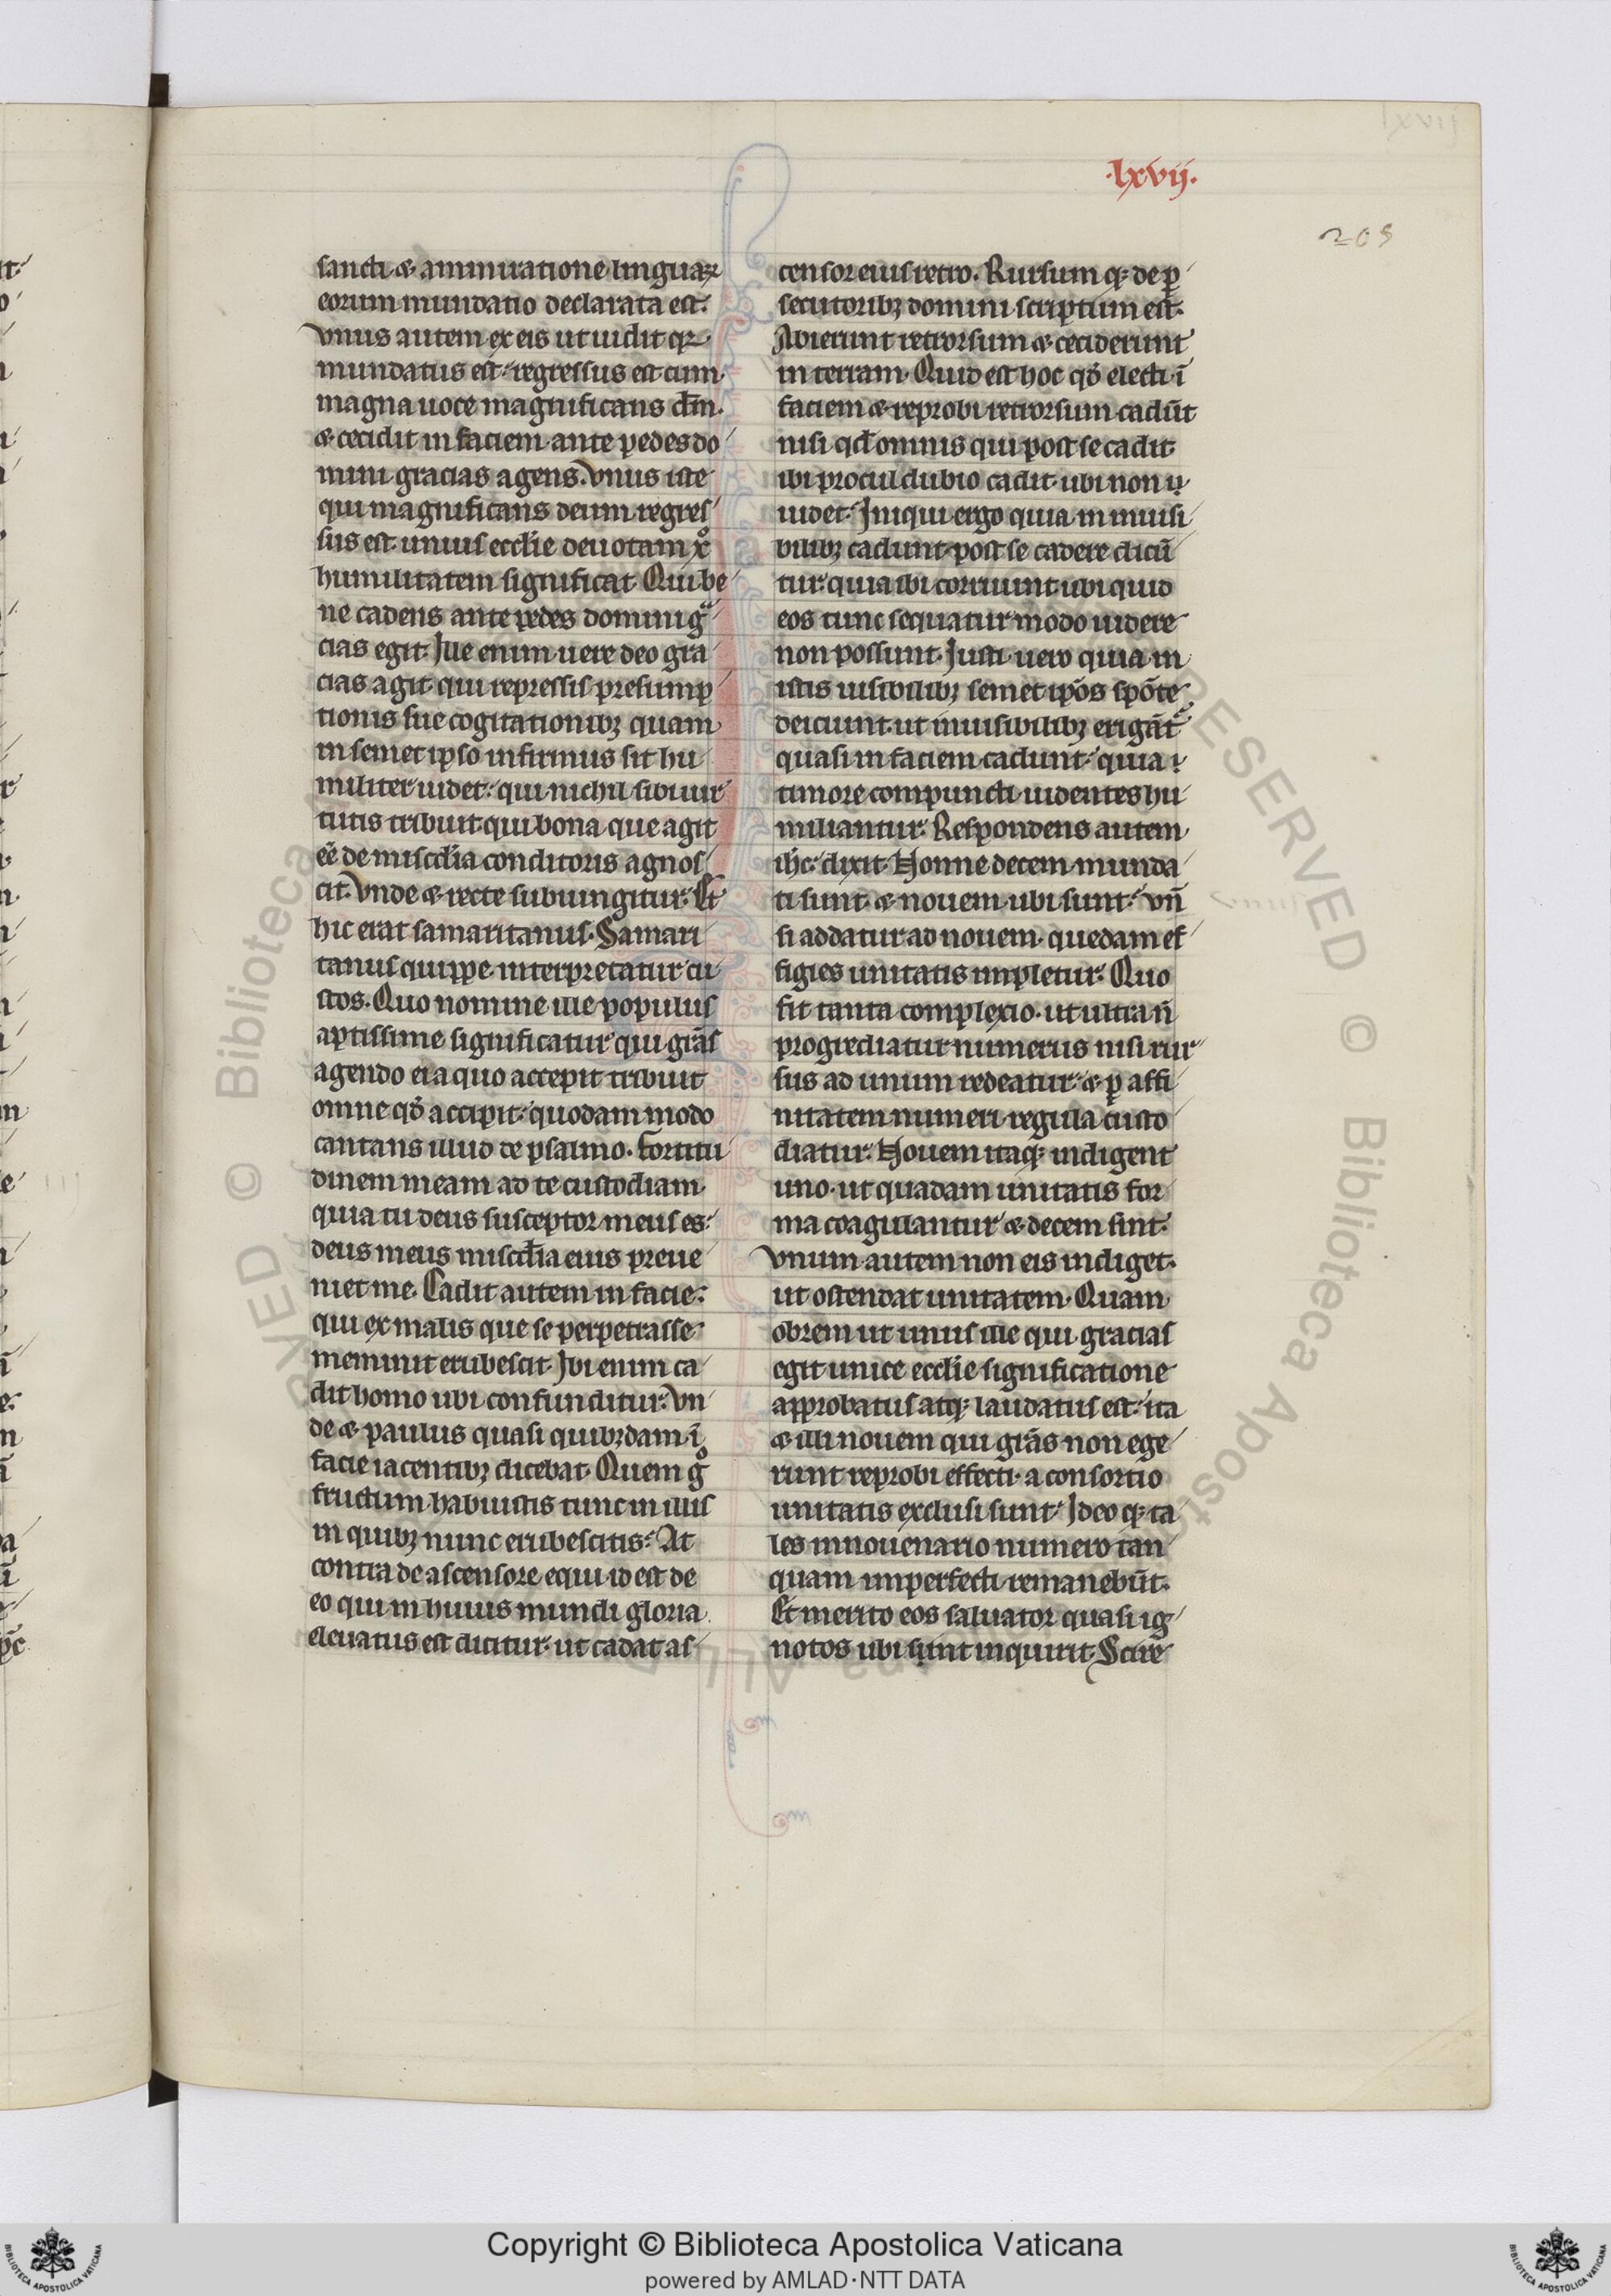 ·lxvij·
209
sancti· & ammiratione linguaꝝ
eorum mundatio declarata est.
Vnus autem ex eis ut uidit qꝛ
mundatus est· regressus est cum
magna uoce magnificans dm̄.
& cecidit in faciem ante pedes do
mini gracias agens. Vnus iste
qui magnificans deum regres
sus est unius eccl̄ie deuotam xͦ
humilitatem significat Qui be
ne cadens ante pedes domini gͣ
cias egit. Ille enim uere deo gra
cias agit qui repressis presump
tionis sue cogitationibꝫ quam
in semet ipso infirmus sit hu
militer uidet· qui nichil sibi uir
tutis tribuit qui bona que agit
eē de misc̄dia conditoris agnos
cit. Vnde & recte subiungitur. Et
hic erat samaritanus. Samari
tanus quippe interpretatur cu
stos. Quo nomine ille populus
aptissime significatur qui grās
agendo ei a quo accepit tribuit
omne qđ accipit· quodam modo
cantans illud de psalmo. Fortitu
dinem meam ad te custodiam
quia tu deus susceptor meus es·
deus meus misc̄dia eius preue
niet me. Cadit autem in facie·
qui ex malis que se perpetrasse
meminit erubescit. Ibi enim ca
dit homo ubi confunditur. Vn
de & paulus quasi quibꝫdam ī
facie iacentibꝫ dicebat. Quem gͦ
fructum habuistis tunc in illis
in quibꝫ nunc erubescitis· At
contra de ascensore equi id est de
eo qui in huius mundi gloria
eleuatus est dicitur· ut cadat as
censor eius retro. Rursum qꝫ de ꝑ
secutoribꝫ domini scriptum est.
Abierunt retrorsum & ceciderunt
in terram. Quid est hoc qđ electi ī
faciem & reprobi retrorsum cadūt
nisi qđ omnis qui post se cadit
ibi procul dubio cadit ubi non ui
uidet. Iniqui ergo quia in inuisi
bilibꝫ cadunt post se cadere dicū
tur· quia ibi corruunt ubi quid
eos tunc sequatur modo uidere
non possunt. Iusti uero quia in
istis uisibilibꝫ semet ip̄os spōte
deiciunt· ut inuisibilibꝫ erigāt̄
quasi in faciem cadunt· quia i
timore compuncti uidentes hu
miliantur. Respondens autem
ih̄c· dixit. Nonne decem munda
ti sunt & nouem ubi sunt· Vn̄
si addatur ad nouem quedam ef
figies unitatis impletur. Quo
fit tanta complexio· ut ultra n̄
progrediatur numerus nisi rur
sus ad unum redeatur· & ꝑ affi
nitatem numeri regula custo
diatur. Nouem itaqꝫ indigent
uno· ut quadam unitatis for
ma coagulantur & decem sint.
Vnum autem non eis indiget·
ut ostendat unitatem. Quam
obrem ut unus ille qui gracias
egit unice eccl̄ie significatione
approbatus atqꝫ laudatus est· ita
& illi nouem qui grās non ege
runt reprobi effecti· a consortio
unitatis exclusi sunt· Ideo qꝫ ta
les in nouenario numero tan
quam imperfecti remanebūt.
Et merito eos saluator quasi ig
notos ubi sint inquirit. Scire
Copyright © Biblioteca Apostolica Vaticana
powered by AMLAD·NTT DATA